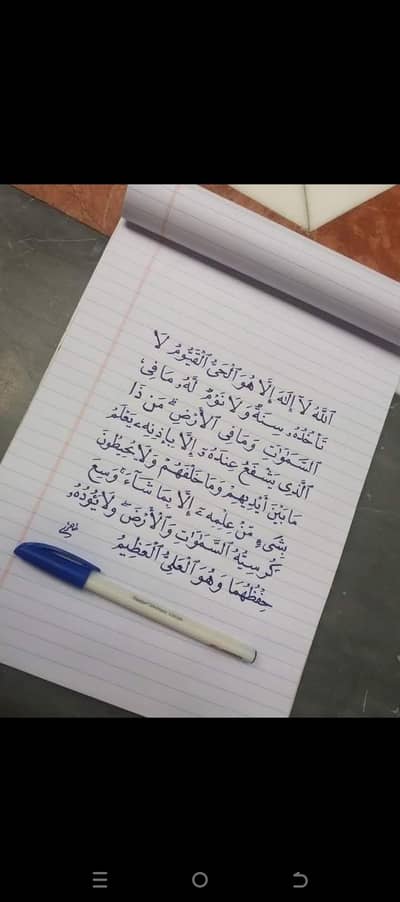 ٱللَّهُ لَآ إِلَٰهَ إِلَّا هُوَ ٱلْحَىُّ ٱلْقَيُّومُ لَا
تَأْخُذُهُۥ سِنَةٌ وَلَا نَوْمٌ لَّهُۥ مَا فِى
ٱلسَّمَٰوَٰتِ وَمَا فِى ٱلْأَرْضِ مَن ذَا
ٱلَّذِى يَشْفَعُ عِندَهُۥٓ إِلَّا بِإِذْنِهِۦ يَعْلَمُ
مَا بَيْنَ أَيْدِيهِمْ وَمَا خَلْفَهُمْ وَلَا يُحِيطُونَ
بِشَىْءٍ مِّنْ عِلْمِهِۦٓ إِلَّا بِمَا شَآءَ وَسِعَ
كُرْسِيُّهُ ٱلسَّمَٰوَٰتِ وَٱلْأَرْضَ وَلَا يَـُٔودُهُۥ
حِفْظُهُمَا وَهُوَ ٱلْعَلِىُّ ٱلْعَظِيمُ